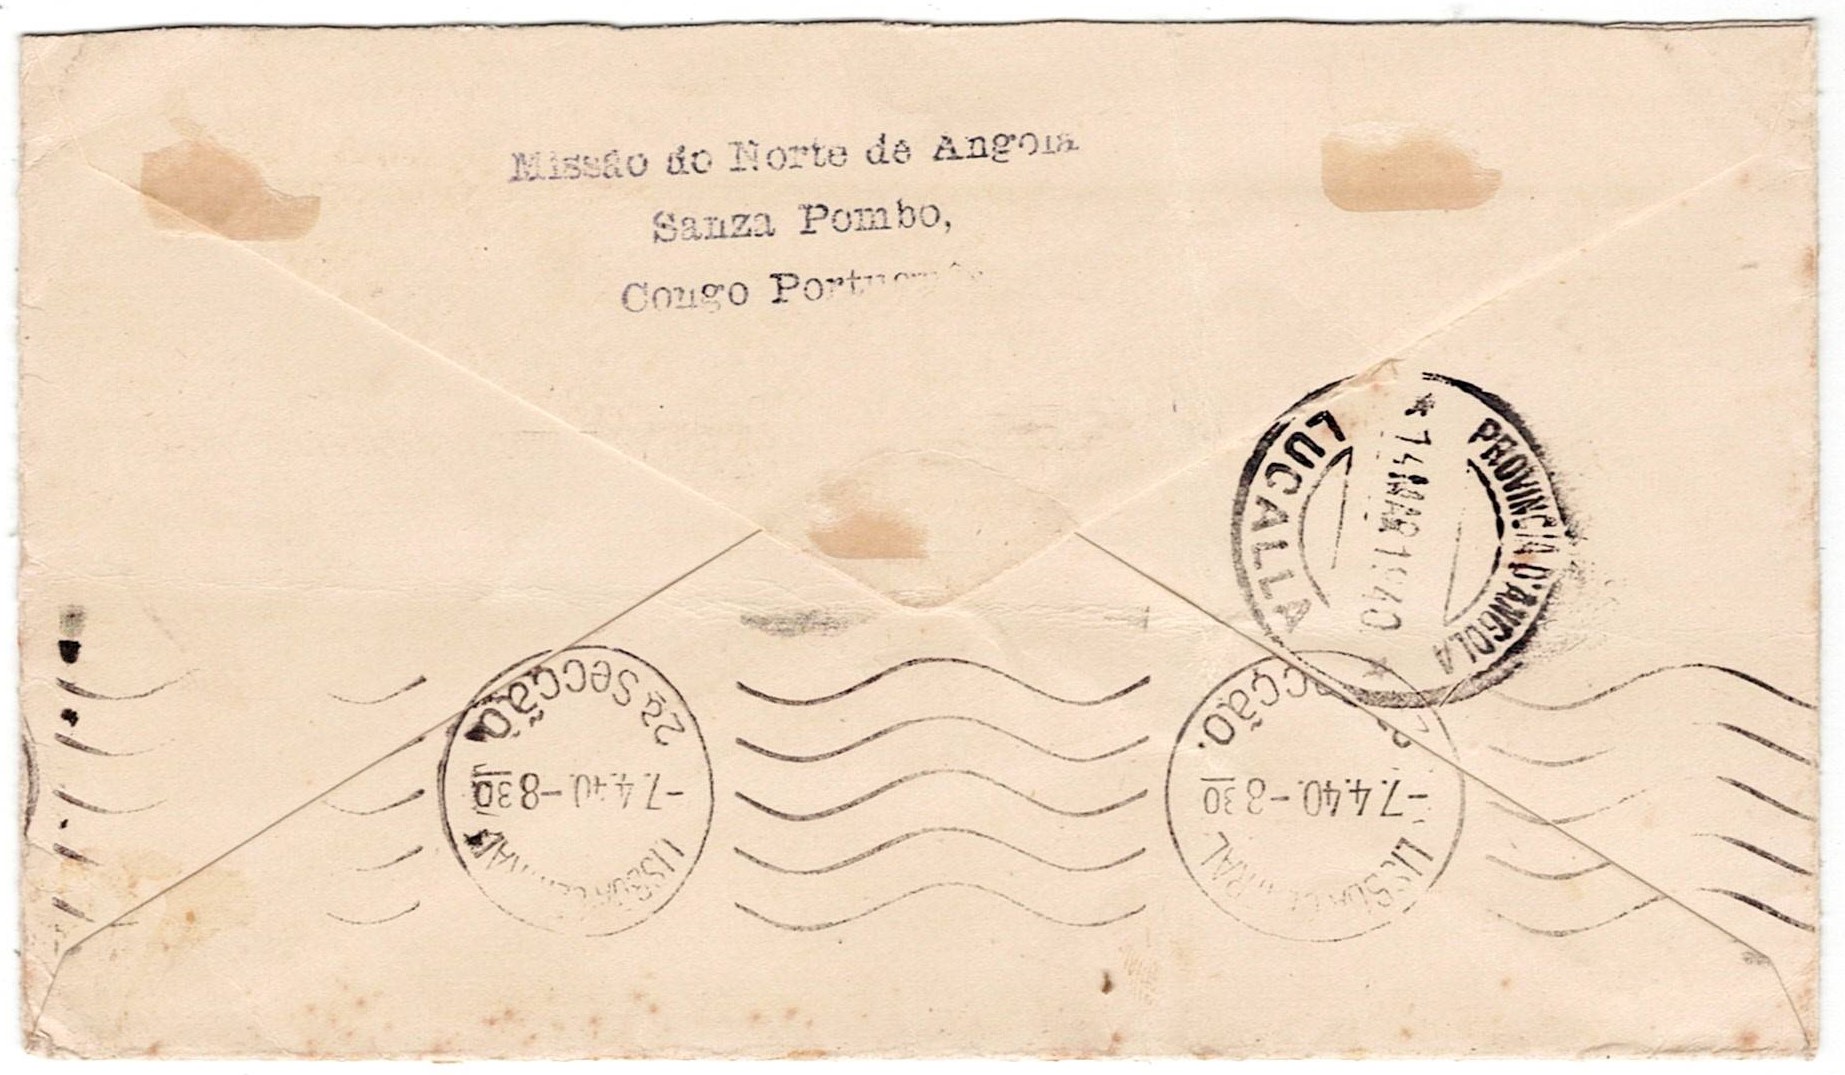 Missão do Norte de Angola
Sanza Pombo,
Congo Português
LUCALLA
* 14MAR1940 *
PROVINCIA D'ANGOLA
2ª Secção.
-7.4.40.-8 30
LISBOA CENTRAL
2ª Secção.
-7.4.40.-8 30
LISBOA CENTRAL